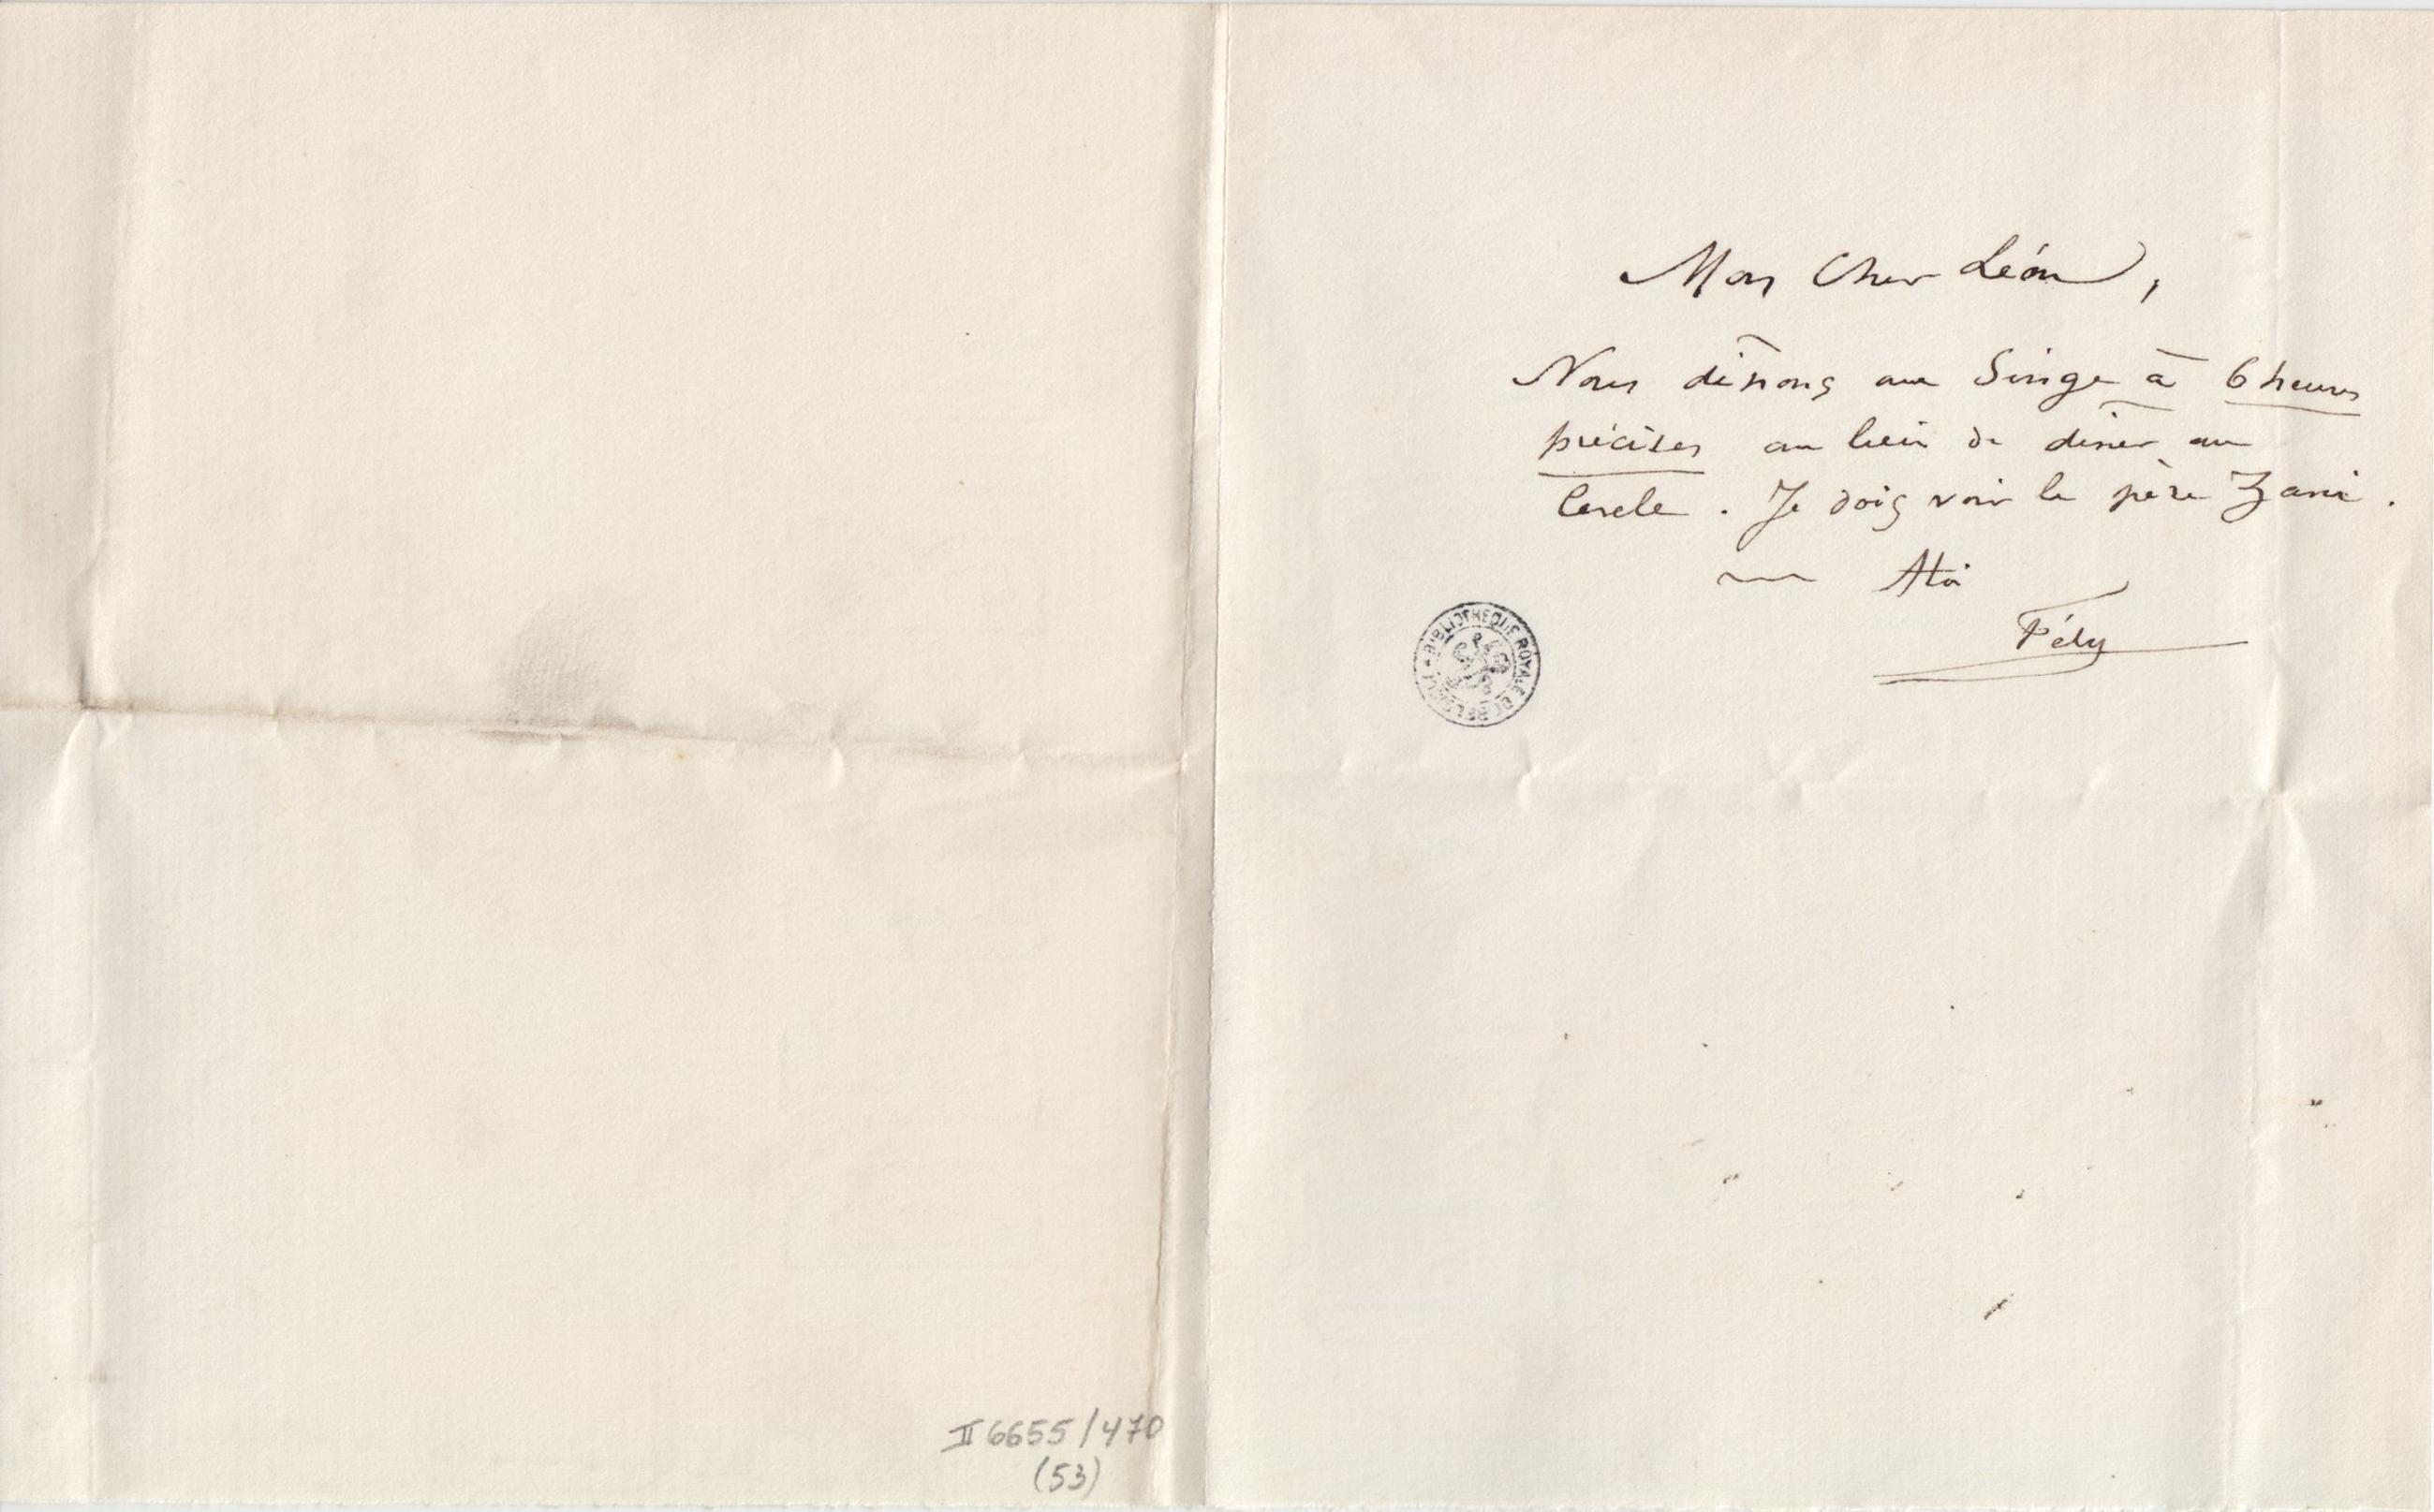 Mon Cher Léon,
Nous dînons au Singe à 6 heures
précises au lieu de dîner au
Cercle. Je dois voir le père Zani.
~ Atoi
Fély
BIBLIOTHEQUE ROYALE DE BELGIQUE
II 6655/470
(53)